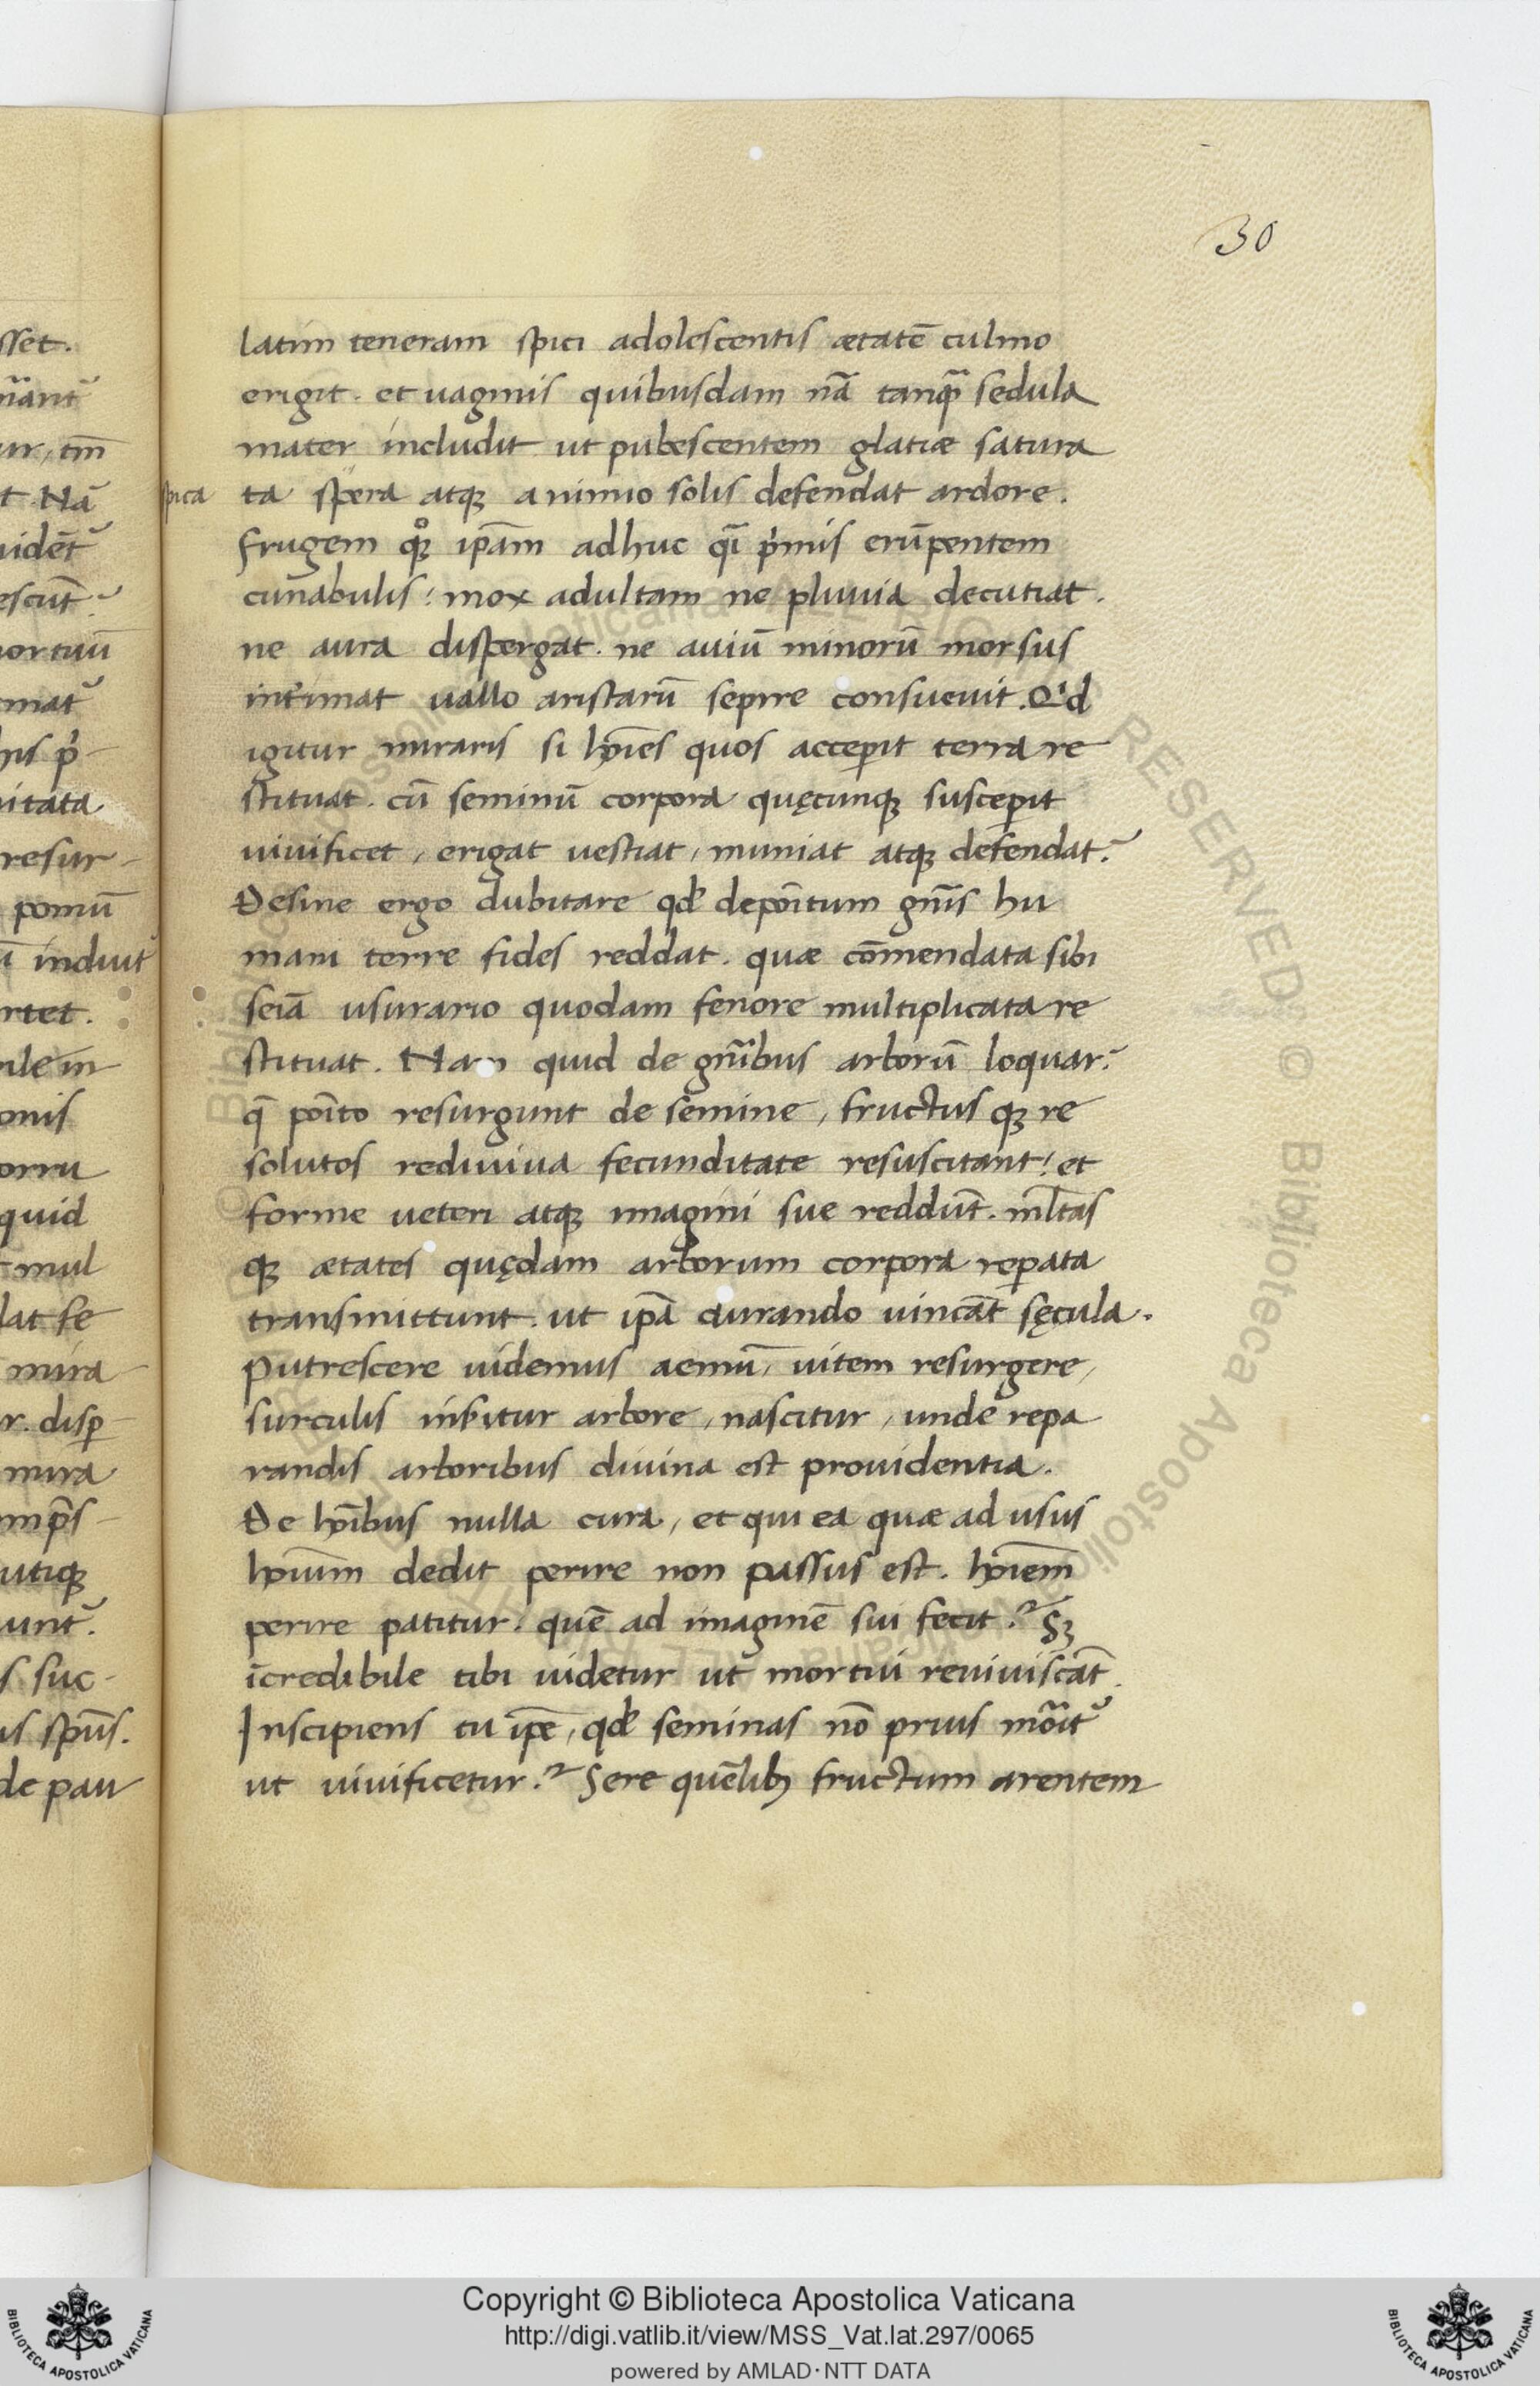 30
latim teneram spici adolescentis ætatē culmo
erigit. et uaginis quibusdam nā tanq̄ sedula
mater includit ut pubescentem glatiæ satura
spica
ta spera atqꝫ a nimio solis defendat ardore.
frugem qꝫ ip̄am adhuc q̄i p̍mis erūpentem
cunabulis: mox adultam ne pluuia decutiat.
ne aura dispergat. ne auiū minorū morsus
uallo aristarū sepire consueuit. Qͥd
igitur miraris si ho͞ies quos acceꝑit terra re
stituat. cū seminū corpora quęcunqꝫ susceꝑit
uiuificet, erigat uestiat, muniat atqꝫ defendat?
Desine ergo dubitare qd̵ depo͞itum gn̄is hu
mani terre fides reddat. quæ cōmendata sibi
seīa usurario quodam fenore multiplicata re
stituat. Nam quid de gn̄ibus arborū loquar?
q̄ po͞ito resurgunt de semine, fructus qꝫ re
solutos rediuiua fecunditate resuscitant: et
forme ueteri atqꝫ imagini sue reddūt. ml̄tas
qꝫ ætates quędam arborum corpora reꝑata
transmittunt. ut ip̄a durando uincāt sęcula.
Putrescere uidemus acinū, uitem resurgere,
surculis arbore, nascitur, unde repa
randis arboribus diuina est prouidentia.
De ho͞ibus nulla cura, et qui ea quæ ad usus
ho͞ium dedit perire non passus est. ho͞iem
perire patitur. quē ad imaginē sui fecit? Sꝫ
īcredibile tibi uidetur ut mortui reuiuiscāt.
Inscipiens tu ip̄e, qd̵ seminas nō prius
ut uiuificetur? Sere quēlibꝫ fructum arentem
Copyright © Biblioteca Apostolica Vaticana
http://digi.vatlib.it/view/MSS_Vat.lat.297/0065
powered by AMLAD·NTT DATA